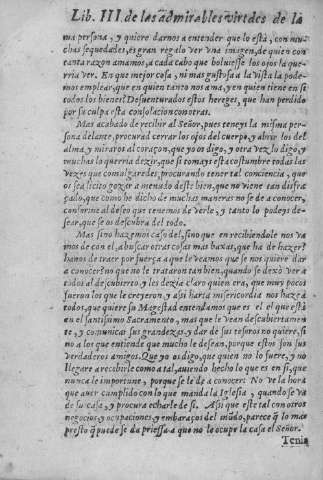 Lib. III. de las admirables virtdes de la
ma persona, y quiere darnos a entender que lo està, con mu-
chas sequedades, es gran regalo ver vna imagen, de quien con
tanta razon amamos, a cada cabo que boluiesse los ojos la que-
rria ver. En que mejor cosa, ni mas gustosa a la vista la pode-
mos emplear, que en quien tanto nos ama, y en quien tiene en si
todos los bienes? Desuenturados estos hereges, que han perdido
por su culpa esta consolacion con otras.
Mas acabado de recibir al Señor, pues teneys la misma per-
sona delante, procurad cerrar los ojos del cuerpo, y abrir los del
alma, y miraros al coraçon, que yo os digo, y otra vez lo digo, y
muchas lo querria dezir, que si tomays esta costumbre todas las
vezes que comulgaredes, procurando tener tal conciencia, que
os sea licito gozar a menudo deste bien, que no viene tan disfra
çado, que como he dicho de muchas maneras no se dè a conocer,
conforme al deseo que tenemos de verle, y tanto lo podeys de-
sear, que se os descubra del todo.
Mas si no hazemos caso del, sino que en recibiendole nos va
mos de con el, a buscar otras cosas mas baxas, que ha de hazer?
hanos de traer por fuerça a que le veamos que se nos quiere dar
a conocer? no que no le trataron tan bien, quando se dexò ver a
todos al descubierto y les dezia claro quien era, que muy pocos
fueron los que le creyeron, y assi harta misericordia nos haze à
todos, que quiere su Magestad entendamos que es el el que està
en el santissimo Sacramento, mas que le vean descubiertamen
te, y comunicar sus grandezas, y dar de sus tesoros no quiere, si
no a los que entiende que mucho le desean, porque estos son sus
verdaderos amigos. Que yo os digo, que quien no lo fuere, y no
llegare a recibirle como a tal, auiendo hecho lo que es en si, que
nunca le importune, porque se le dè a conocer. No ve la hora
que auer cumplido con lo que manda la Iglesia, quando se và
de su casa, y procura echarle de si. Assi que este tal con otros
negocios, y ocupaciones, y embaraços del mũdo, parece q̃ lo mas
presto q̃ puede se da priessa a que no le ocupe la casa el Señor.
Tenia